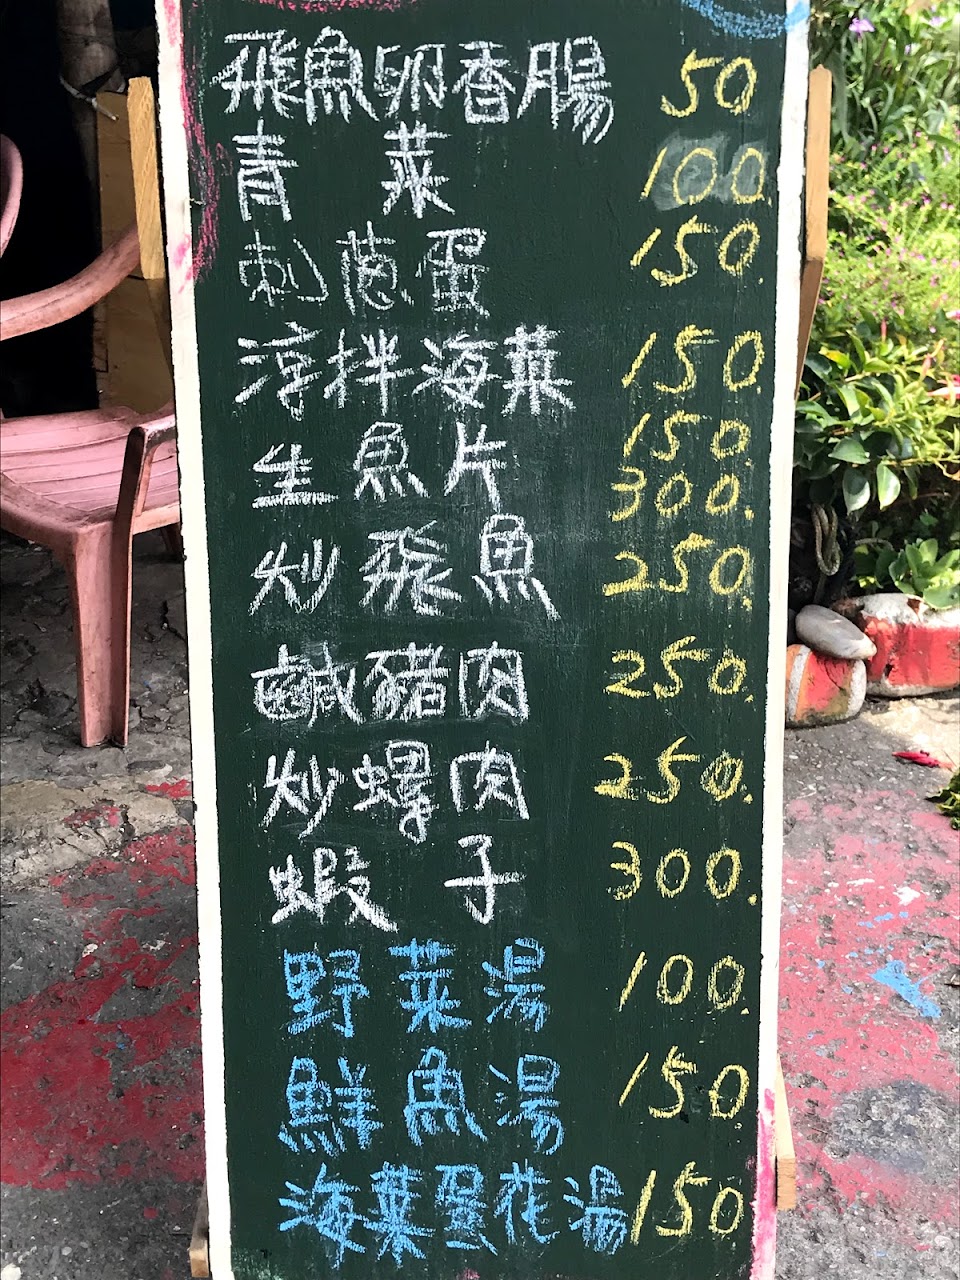 飛魚卵香腸 50
青菜 100.
刺蔥蛋 150.
涼拌海菜 150.
生魚片 150.
300.
炒飛魚 250.
鹹豬肉 250.
炒螺肉 250.
蝦子 300.
野菜湯 100.
鮮魚湯 150
海菜蛋花湯 150